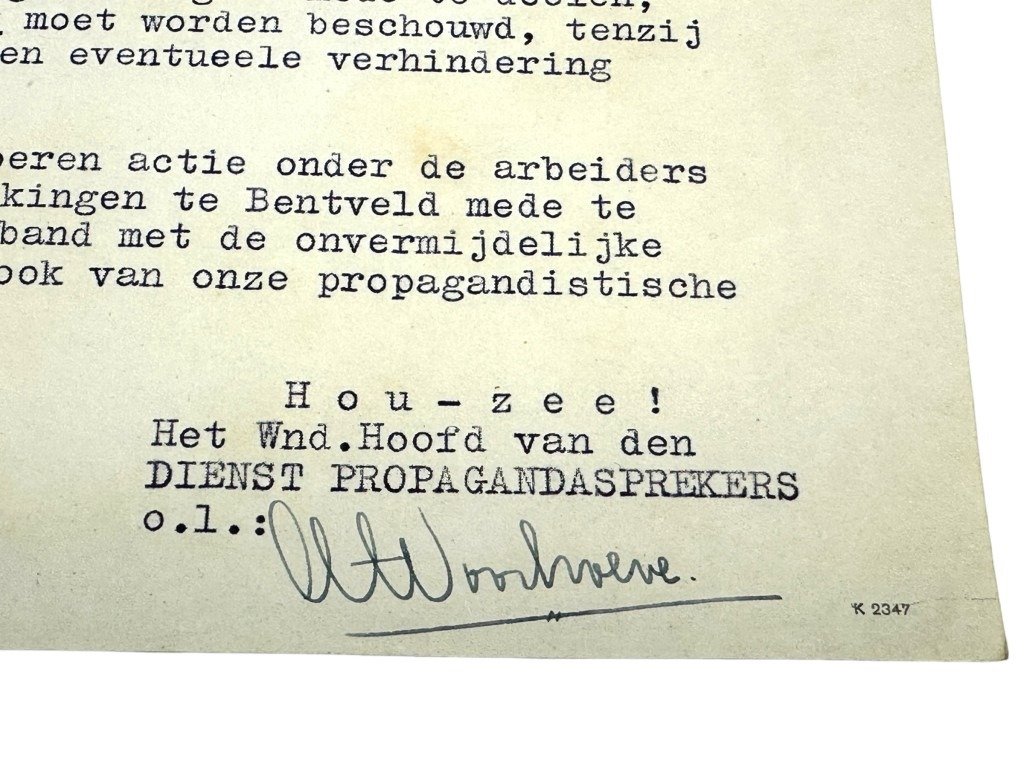 moet worden beschouwd, tenzij
en eventueele verhindering
eren actie onder de arbeiders
kingen te Bentveld mede te
band met de onvermijdelijke
ook van onze propagandistische
H o u - z e e !
Het Wnd.Hoofd van den
DIENST PROPAGANDASPREKERS
o.l.: Woorhoeve.
K 2347